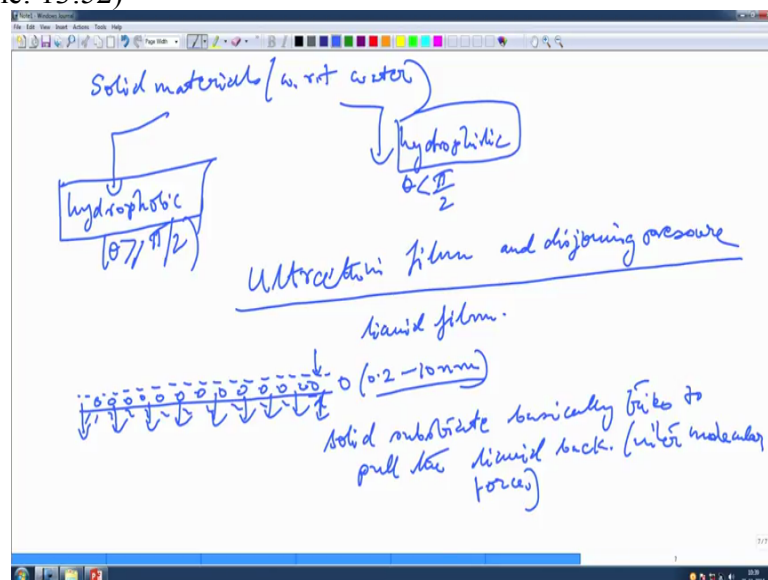 Note1 - Windows Journal
File Edit View Insert Actions Tools Help
Page Width
Solid materials (w.r.t water)
hydrophilic
θ < π/2
hydrophobic
(θ ≥ π/2)
Ultrathin film and disjoining pressure
liquid film.
0 (0.2 - 10 nm)
solid substrate basically tries to
pull the liquid back. (inter molecular
forces)
7/7